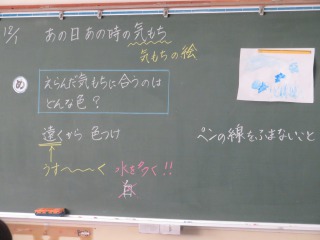 12/1
あの日あの時の気もち
気もちの絵
め
えらんだ気もちに合うのは
どんな色？
遠くから 色つけ
うす〜〜〜く
水を多く!!
白
ペンの線をふまないこと